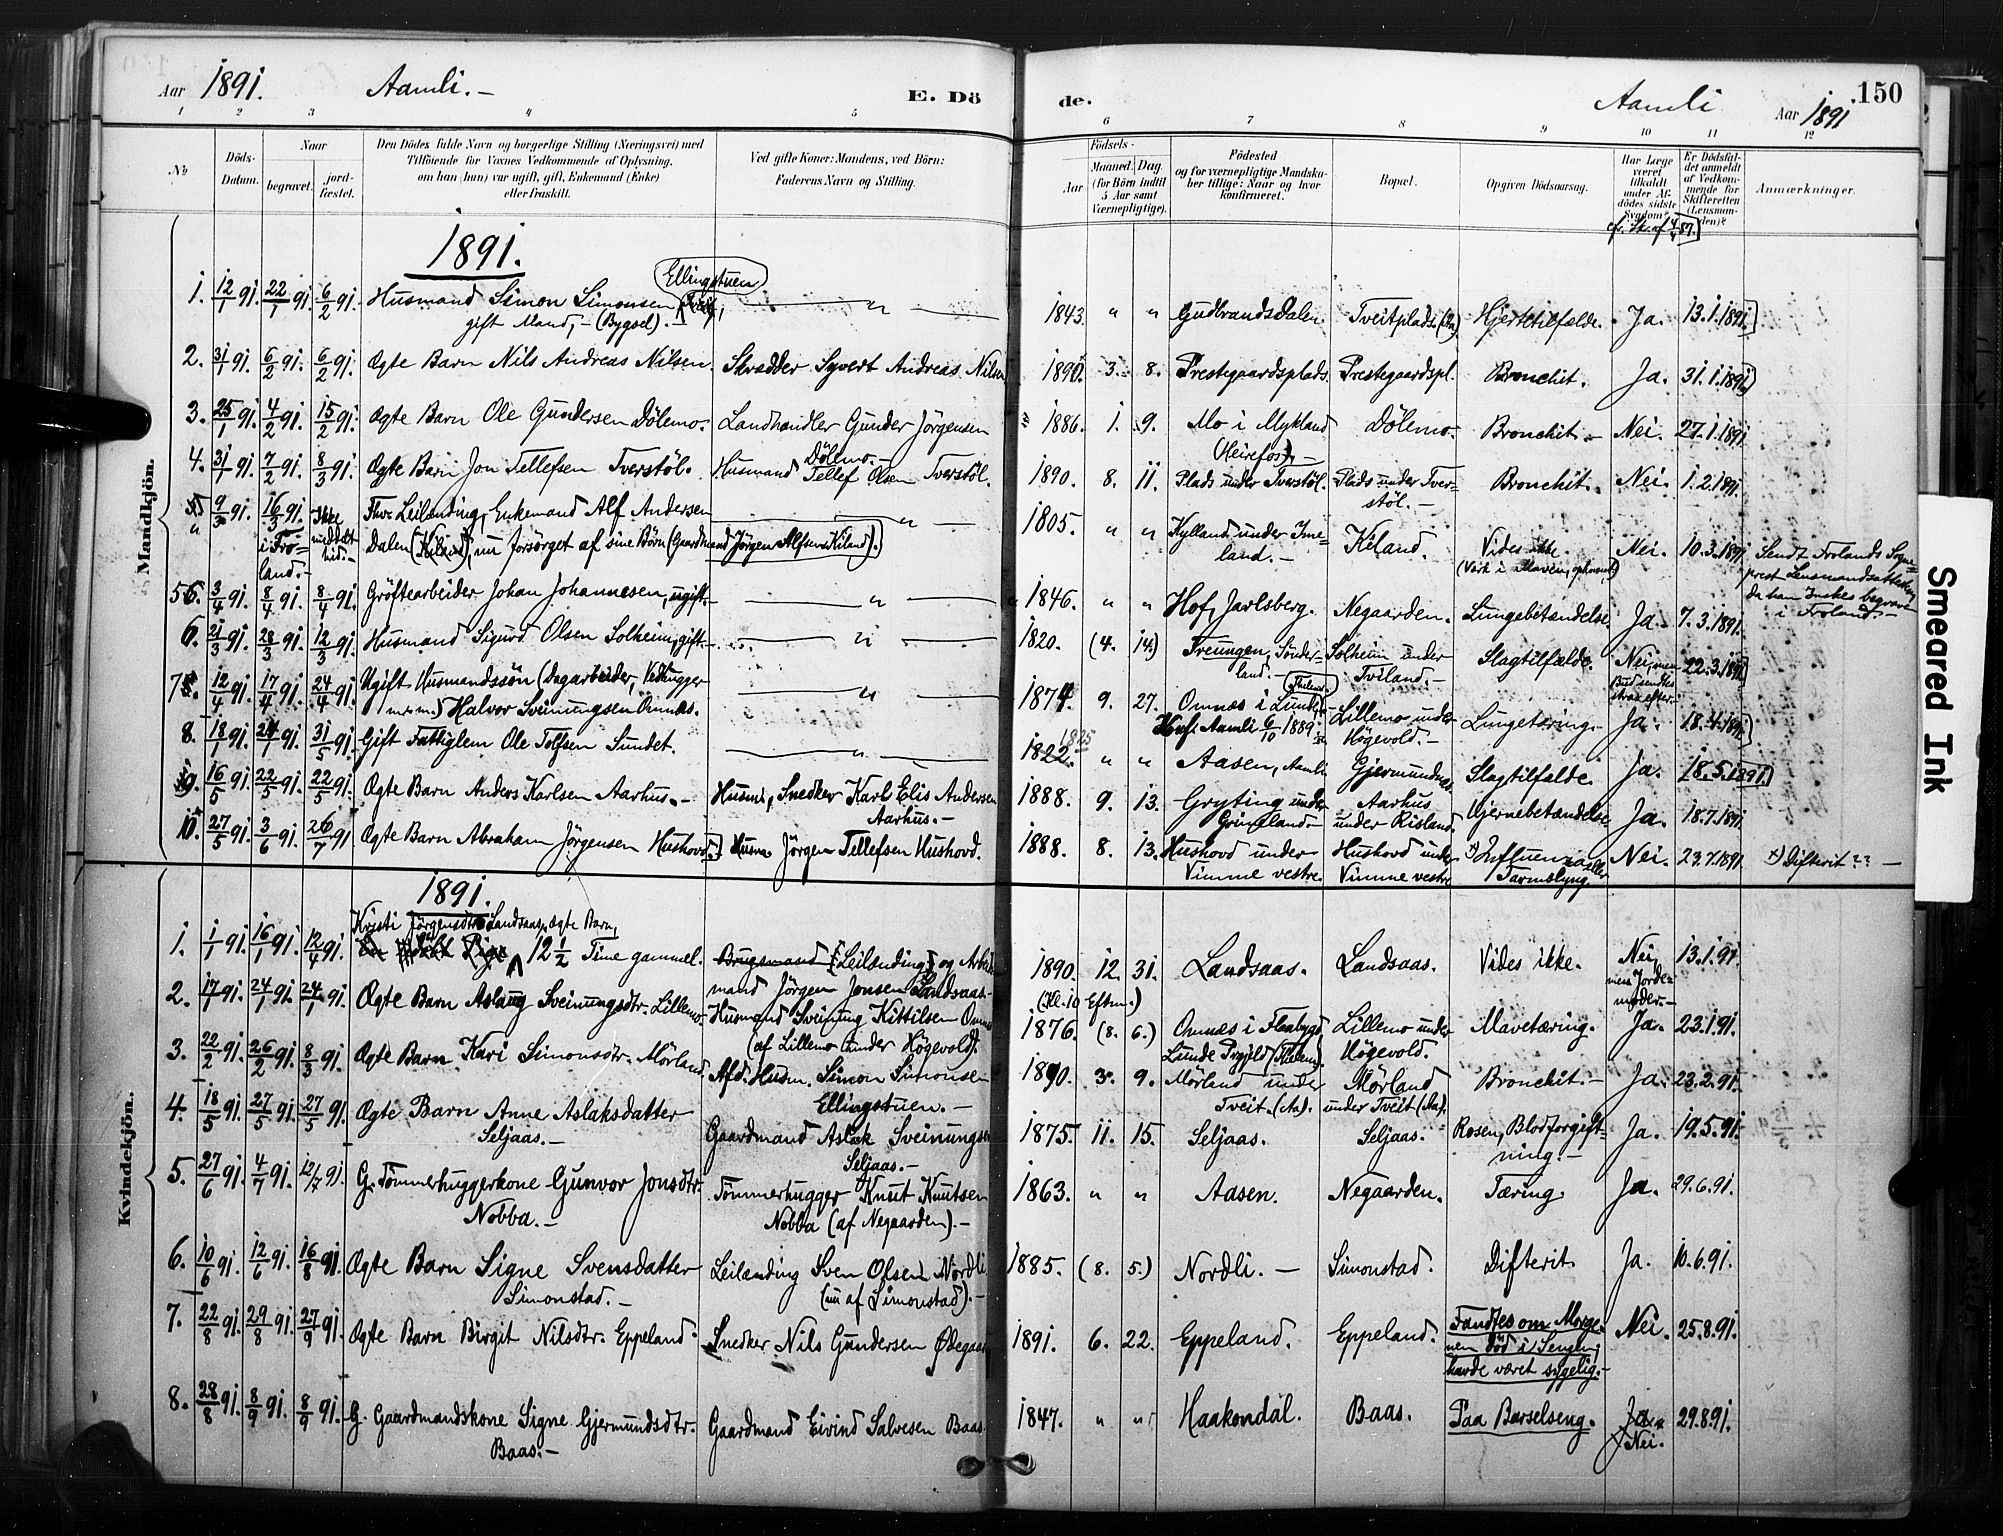 Aar 1891. Aamli.- E. Dö
de. Aamli Aar 1891. 150
1 2 3 4 5 6 7 8 9 10 11 12
No
Döds-Datum.
Naar
begravet.
jord-fæstet.
Den Dödes fulde Navn og borgerlige Stilling (Næringsvei) med
Tilföiende for Voxnes Vedkommende af Oplysning,
om han (hun) var ugift, gift, Enkemand (Enke)
eller fraskilt.
Ved gifte Koner: Mandens, ved Börn:
Faderens Navn og Stilling.
Födsels-
Aar
Maaned. Dag
(for Börn indtil
5 Aar samt
Værnepligtige).
Födested
og for værnepligtige Mandska-
ber tillige: Naar og hvor
konfirmeret.
Bopæl.
Opgiven Dödsaarsag.
Har Læge
været
tilkaldt
under Af-
dödes sidste
Sygdom?
Er Dödsfal-
det anmeldt
af Vedkom-
mende for
Skifteretten
(Lensman-
den)?
Anmærkninger.
Mandkjön.
1891.
1. 12/1 91. 22/1 91 6/2 91. Husmand Simon Simonsen Ellingstuen
gift Mand,- (Bygsel).
1843. " " Gudbrandsdalen Tveitplads (Aa) Hjertetilfælde. Ja. 13.1.1891.
2. 31/1 91. 6/2 91. 6/2 91. Ægte Barn Nils Andreas Nilsen. Skrædder Syvert Andreas Nilsen 1890. 3. 8. Prestegaardsplads. Prestegaardspl. Bronchit. Ja. 31.1.1891
3. 25/1 91. 4/2 91. 15/2 91. Ægte Barn Ole Gundersen Dölemo. Landhandler Gunder Jörgensen
Dölemo.-
1886. 1. 9. Mo i Mykland
(Heirefos)-
Dölemo. Bronchit.- Nei. 27.1.1891
4. 31/1 91. 7/2 91. 8/3 91. Ægte Barn Jon Tellefsen Tverstöl. Husmand Tellef Olsen Tverstöl. 1890. 8. 11. Plads under Tverstöl. Plads under Tver-
stöl.-
Bronchit. Nei. 1.2.1891.
" 9/3 91. 16/3 91. i Fro-
land.-
Ikke
meddelt
hid.-
Fhv. Leilænding, Enkemand Alf Andersen
Dalen (Kiland), nu forsörget af sine Börn (Gaardmand Jörgen Alfsen Kiland).
1805. " " Kylland under Ime-
land.-
Kiland. Vides ikke.
Nei. 10.3.1891 Sendt Frolands Sogne-
prest Lensmandsattesten,
da han önskes begravet
i Froland.-
5. 3/4 91. 8/4 91. 8/4 91. Gröftearbeider Johan Johannesen, ugift.- " 1846. " " Hof, Jarlsberg. Negaarden. Lungebetændelse. Ja. 7.3.1891.
6. 21/3 91. 28/3 91. 12/3 91. Husmand Sigurd Olsen Solheim, gift.- " 1820. (4. 14.) Treungen, Sönder-
land.-
Solheim under
Tviland.-
Slagtilfælde. Nei, men
Bud sendtes
strax efter.
22.3.1891
7. 12/4 91. 17/4 91. 24/4 91. Ugift Husmandssön (Dagarbeider, Vedhugger
m.m.) Halvor Sveinungsen Omnæs.
" 1874. 9. 27. Omnæs i Lunde
Konf. Aamli 6/10 1889
Lillemo under
Högevold.-
Lungetæring. Ja. 18.4.1891
8. 18/1 91. 24/1 91. 31/5 91. Gift Fattiglem Ole Tolfsen Sundet. " 1822. 1825 " " Aasen, Aamli Gjermundnes Slagtilfælde. Ja. 18.5.1891.
9. 16/5 91. 22/5 91. 22/5 91. Ægte Barn Anders Karlsen Aarhus.- Husm., Snedker Karl Elis Andersen
Aarhus.-
1888. 9. 13. Gryting under
Grimeland.-
Aarhus
under Risland.
Hjernebetændelse Ja. 18.7.1891
10. 27/5 91. 3/6 91. 26/7 91 Ægte Barn Abraham Jörgensen Hushovd. Husm. Jörgen Tellefsen Hushovd. 1888. 8. 13. Hushovd under
Vimme vestre.
Hushovd under
Vimme vestre
x) Influenza eller
Nei. 23.7.1891. x) Difterit ?? -
Kvindekjön.
1891.
1. 1/1 91. 16/1 91. 12/4 91. Kristi Jörgensdtr. Landsaas, ægte Barn,
12 1/2 Time gammel.
Brugsmand (Leilænding) og Arbeids-
mand Jörgen Jonsen Landsaas.-
1890. 12. 31.
(Kl. 10 Eftm.)
Landsaas. Landsaas. Vides ikke. Nei,
men Jorde-
moder.-
13.1.91.
2. 17/1 91. 24/1 91. 24/1 91. Ægte Barn Aslaug Sveinungsdtr. Lillemo.- Husmand Sveinung Kittilsen Omnæs
(af Lillemo under Högevold).
1876. (8. 6.) Omnæs i Flaabygd
Lunde Prgjeld (Thelem.)
Lillemo under
Högevold.
Mavetæring. Ja. 23.1.91.
3. 22/2 91. 26/2 91. 8/3 91. Ægte Barn Kari Simonsdtr. Mörland. Afd. Husm. Simon Simonsen
Ellingstuen.-
1890. 3. 9. Mörland under
Tveit. (Aa).
Mörland
under Tveit (Aa).
Bronchit.- Ja. 23.2.91.
4. 18/5 91. 27/5 91. 27/5 91. Ægte Barn Anne Aslaksdatter
Seljaas.-
Gaardmand Aslak Sveinungsen
Seljaas.-
1875. 11. 15. Seljaas. Seljaas. Rosen, Blodforgift-
ning.-
Ja. 19.5.91.
5. 27/6 91. 4/7 91. 12/7 91. G. Tömmerhuggerkone Gunvor Jonsdtr.
Nobba.-
Tömmerhugger Knut Knutsen
Nobba (af Negaarden).-
1863. " " Aasen. Negaarden. Tæring. Ja. 29.6.91.
6. 10/6 91. 12/6 91. 16/8 91. Ægte Barn Signe Svensdatter
Simonstad.-
Leilænding Sven Olsen Nordli
(nu af Simonstad).-
1885. (8. 5.) Nordli.- Simonstad. Difterit. Ja. 10.6.91.
7. 22/8 91. 29/8 91. 27/9 91. Ægte Barn Birgit Nilsdtr. Eppeland. Snedker Nils Gundersen Ödegaard 1891. 6. 22. Eppeland. Eppeland. Fandtes om Morge-
nen död i Sengen,
havde været sygelig.-
Nei. 25.8.91.
8. 28/8 91. 8/9 91. 8/9 91. G. Gaardmandskone Signe Gjermundsdtr.
Baas.-
Gaardmand Eivind Salvesen Baas. 1847. " " Haakondal. Baas. Paa Barselseng. Ja
Nei.
29.8.91.
Smeared Ink